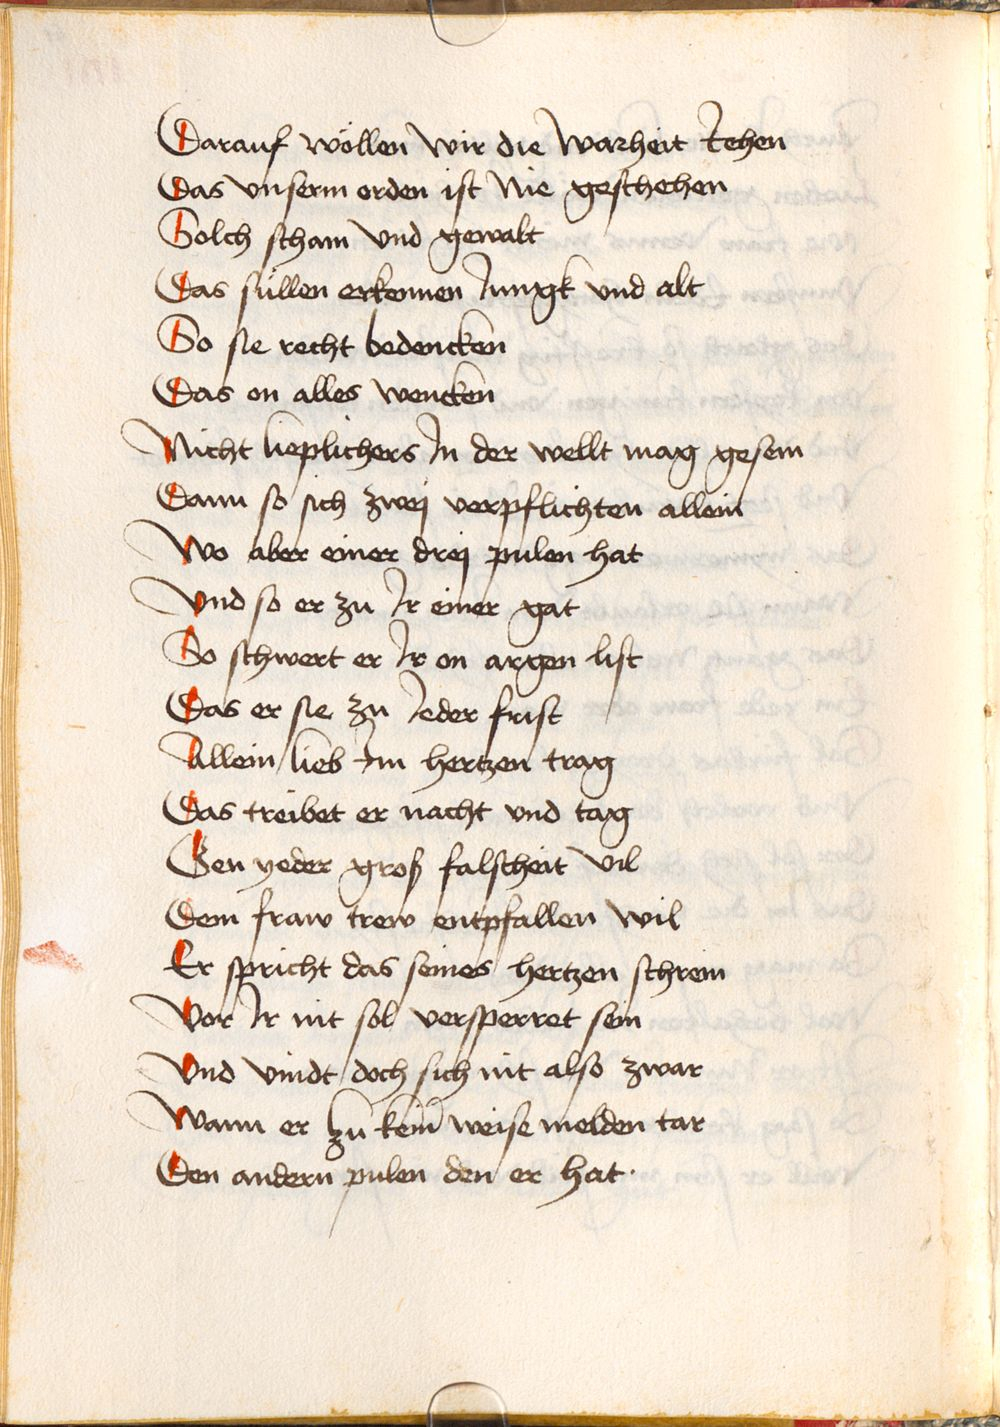 Darauf wöllen wir die warheit Iehen
Das vnserm orden ist Nie geschehen
Solch scham vnd gewalt
Das süllen erkennen Iungk vnd alt
So sie recht bedencken
Das on alles wencken
Nicht lieplichers In der wellt mag gesein
Dann so sich zweij verpflichten allein
Wo aber einer dreij pulen hat
Vnd so er zu Ir einer gat
So schwert er Ir on argen list
Das er sie zu Ieder frist
Allein lieb Im hertzen trag
Das treibet er nacht vnd tag
Gen yeder groß falscheit vil
Dem fraw trew entpfallen wil
Er spricht das seines hertzen schrein
Vor Ir nit sol versperret sein
Vnd vindt doch sich nit also zwar
Wann er zu keinr weise melden tar
Den andern pulen den er hat.